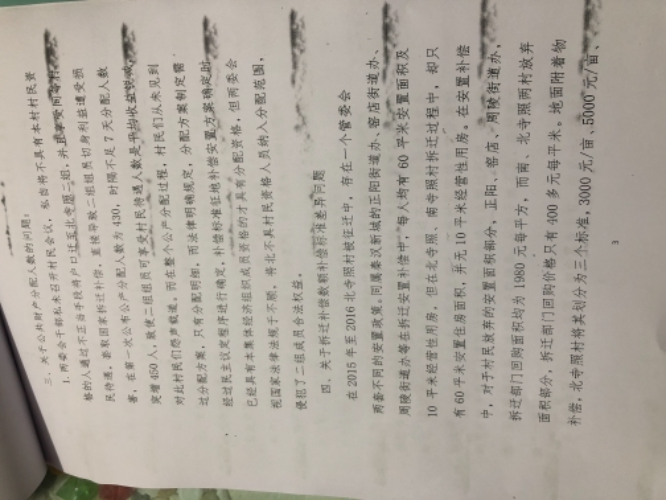 三、关于公共财产分配人数的问题:
1. 两委会干部私未召开村民会议,私自将不具有本村村民资
格的人通过不正当手段将户口迁至北寺照二组,并且享受同等村
民待遇,套取国家拆迁补偿,直接导致二组组员切身利益遭受损
害,在第一次公布公产分配人数为430,时隔不足7天分配人数
突增450人,致使二组组员可享受村民待遇人数是平均收益锐减,
对此村民们怨声载道。而在整个公产分配过程,村民们从未见到
过分配方案,只有分配明细,而法律明确规定,分配方案制定需
经过民主议定程序进行确定,补偿标准征地补偿安置方案确定时
已经具有本集体经济组织成员资格的才具有分配资格,但两委会
视国家法律法规于不顾,将北不具村民资格人员纳入分配范围,
侵犯了二组成员合法权益。
四、关于拆迁补偿数额补偿标准差异问题
在2015年至2016北寺照村被征迁中,存在一个管委会
两套不同的安置政策。同属秦汉新城的正阳街道办、窑店街道办、
周陵街道办等在拆迁安置补偿中,每人均有60平米安置面积及
10平米经营性用房。但在北寺照、南寺照村拆迁过程中,却只
有60平米安置住房面积,并无10平米经营性用房。在安置补偿
中,对于村民放弃的安置面积部分,正阳、窑店、周陵街道办,
拆迁部门回购面积均为1980元每平方,而南、北寺照两村放弃
面积部分,拆迁部门回购价格只有400多元每平米。地面附着物
补偿,北寺照村将其划分为三个标准,3000元/亩、5000元/亩、
3